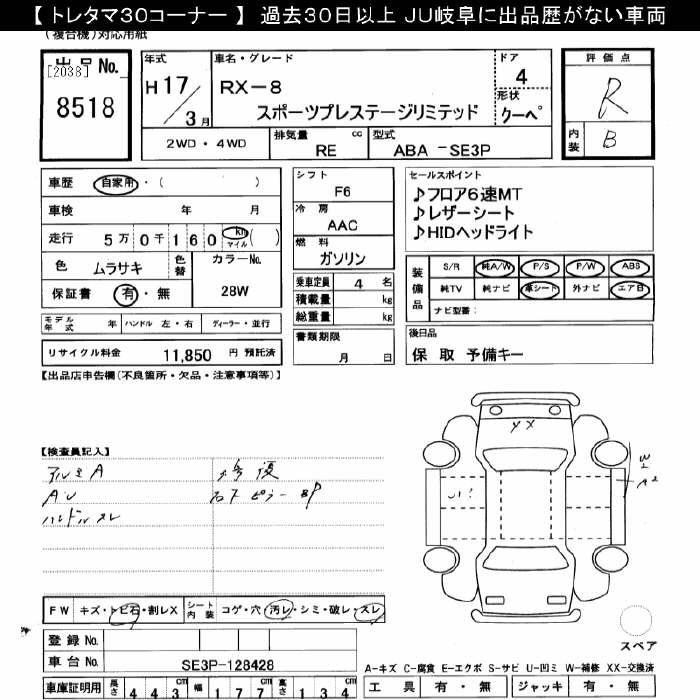 【 トレタマ30コーナー 】 過去30日以上 JU岐阜に出品歴がない車両
(複合機)対応用紙
出品 No.
[2038]
8518
年式
H 17 / 3 月
車名・グレード
RX-8
スポーツプレステージリミテッド
ドア
4
形状
クーペ
評価点
R
内装
B
2WD・4WD
排気量 cc
RE
型式
ABA -SE3P
車歴 自家用・( )
車検 年 月
走行 5万0千160 km マイル ( )
色 ムラサキ
色替
カラーNo.
28W
保証書 有・無
シフト
F6
冷房
AAC
燃料
ガソリン
乗車定員 4 名
積載量 kg
総重量 kg
書類期限
月 日
セールスポイント
♪フロア6速MT
♪レザーシート
♪HIDヘッドライト
装備品
S/R 純A/W P/S P/W ABS
純TV 純ナビ 革シート 外ナビ エアB
ナビ型番:
モデル年式 年 ハンドル 左・右 ディーラー・並行
リサイクル料金 11,850 円 預託済
後日品
保 取 予備キー
【出品店申告欄(不良箇所・欠品・注意事項等)】
【検査員記入】
アルミA
AU
ハンドルスレ
修復
右F ピラー BP
XX
W2
A2
U1
FW キズ・トビ石・割レX
シート内装 コゲ・穴・汚レ・シミ・破レ・スレ
登録 No.
車台 No. SE3P-128428
車庫証明用 長さ 443 幅 177 高さ 134
スペア
A-キズ C-腐食 E-エクボ S-サビ U-凹ミ W-補修 XX-交換済
工具 有・無 ジャッキ 有・無